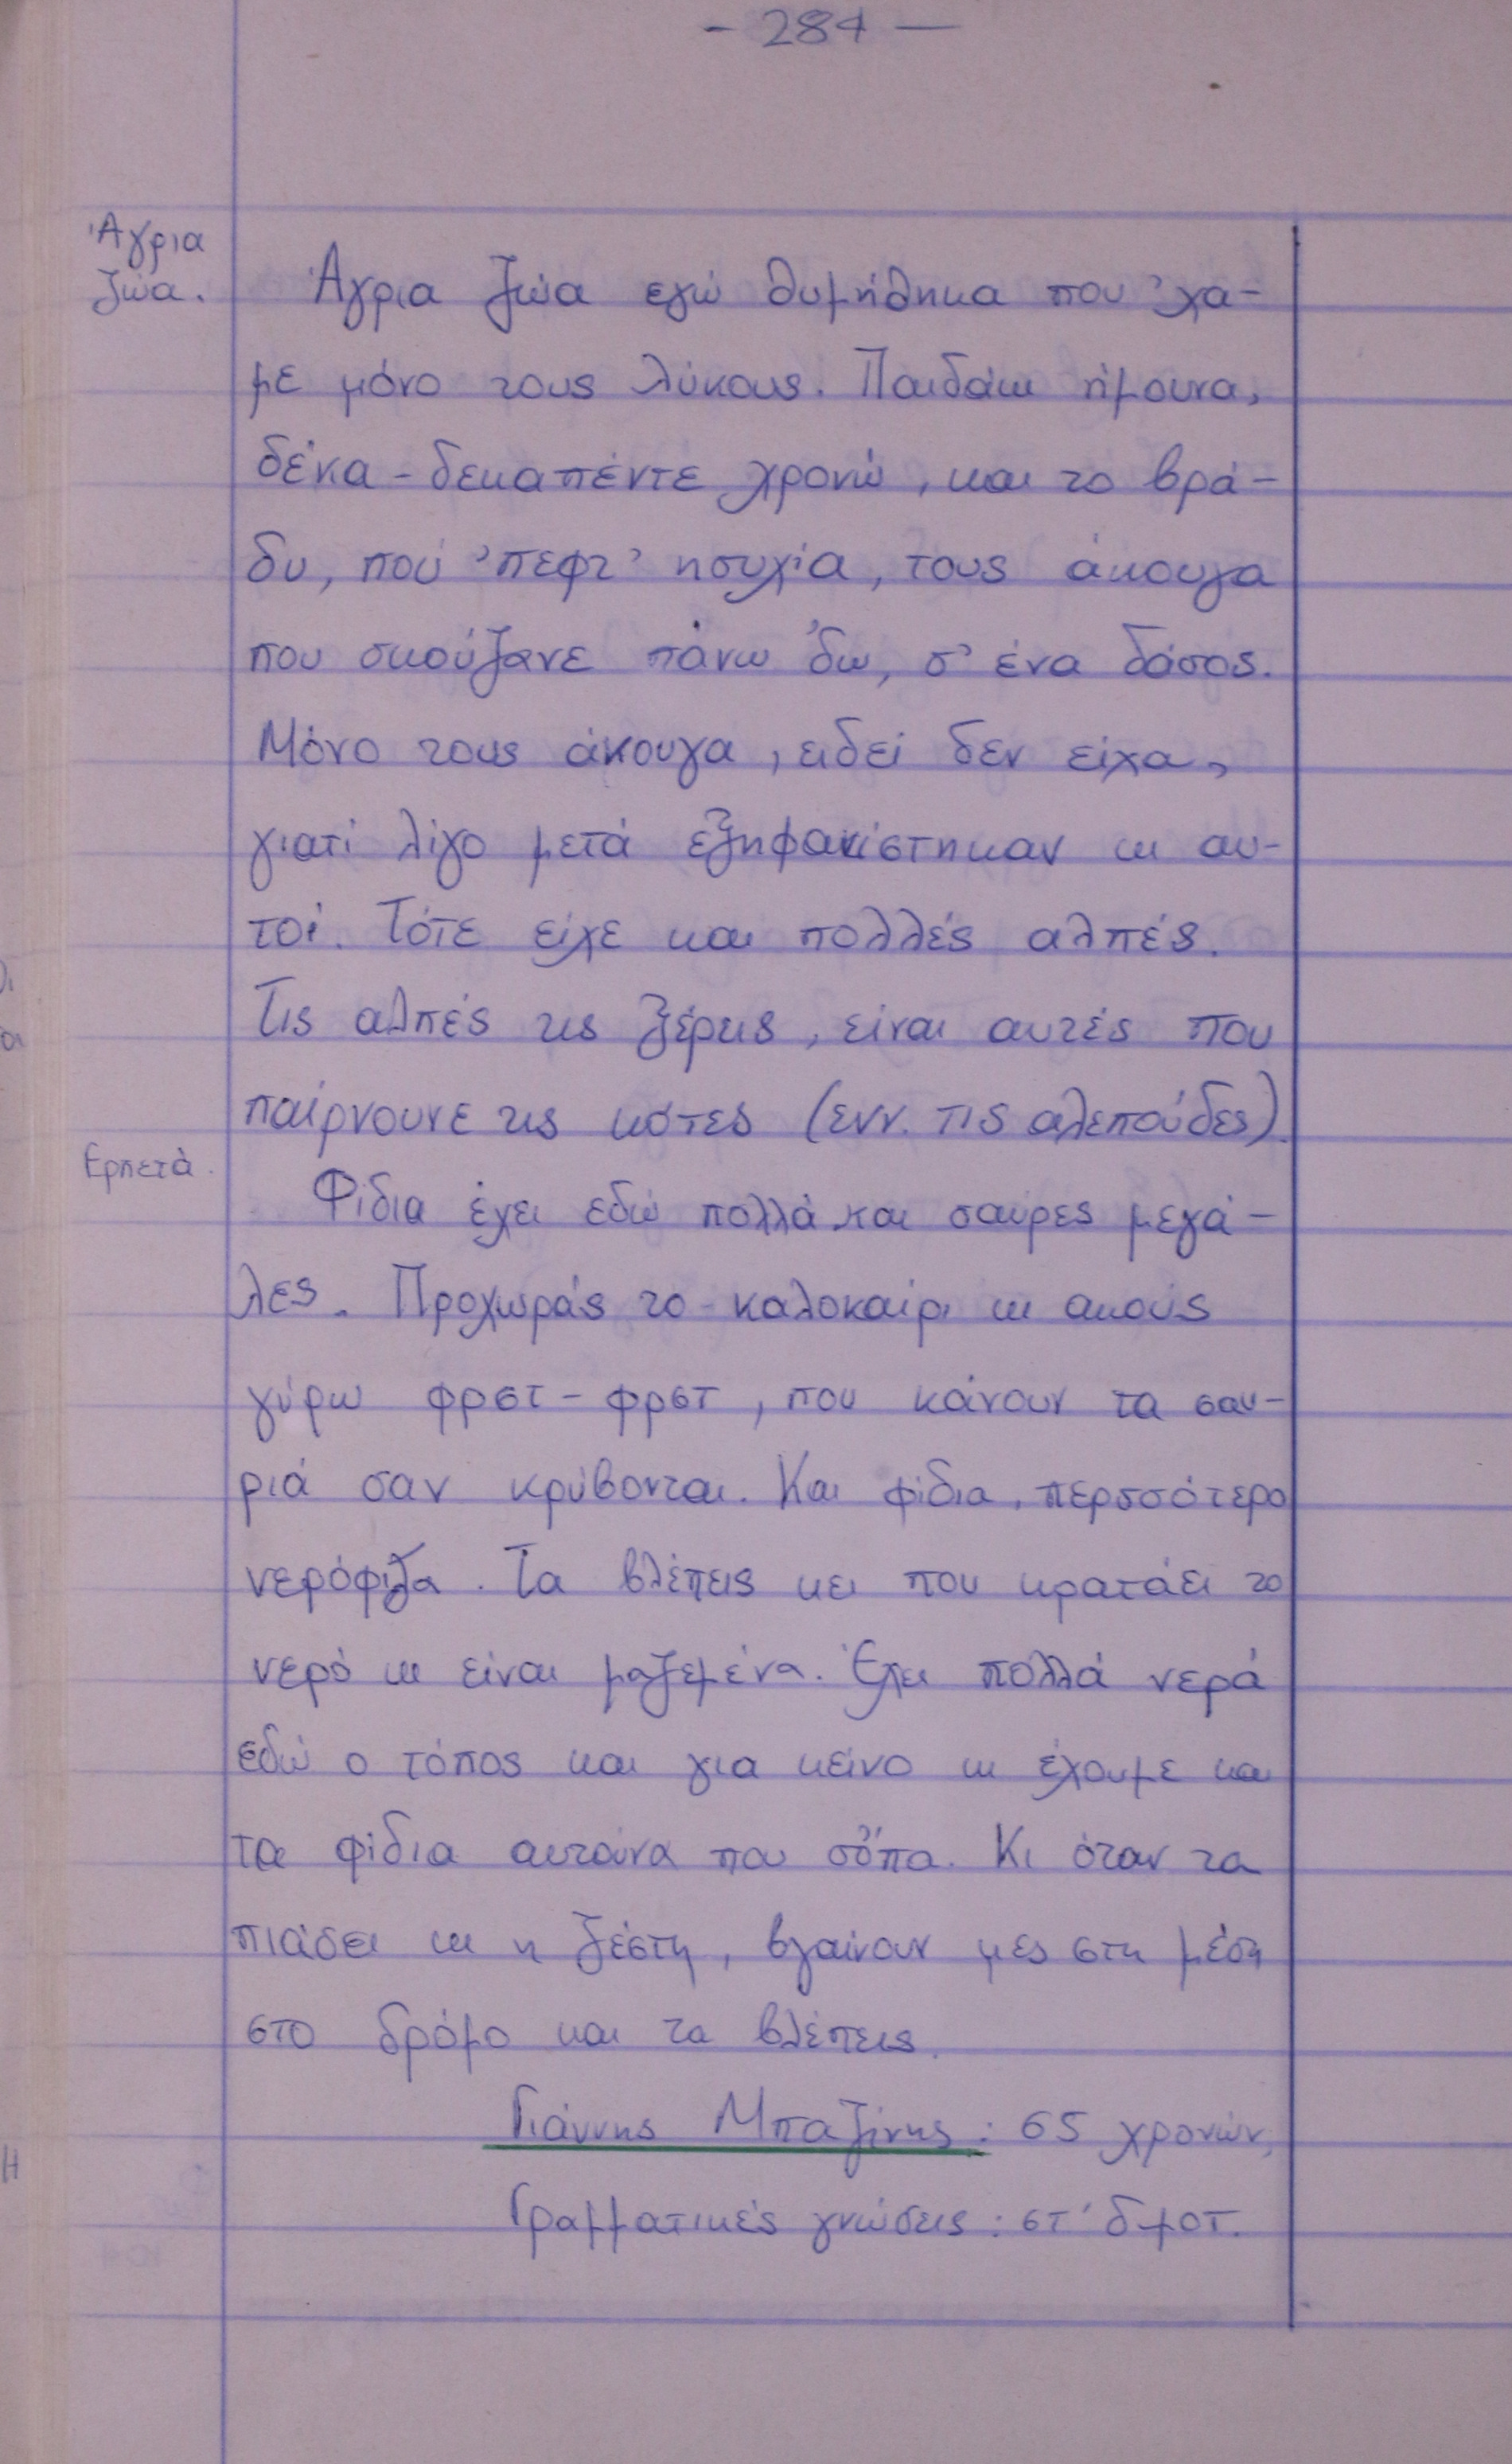 - 284 -
Άγρια
ζώα.
Άγρια ζώα εγώ θυμήθηκα που 'χα-
με μόνο τους λύκους. Παιδάκι ήμουνα,
δέκα-δεκαπέντε χρονώ, και το βρά-
δυ, πού 'πεφτ' ησυχία, τους άκουγα
που σκούζανε πάνω 'δω, σ' ένα δάσος.
Μόνο τους άκουγα, ειδεί δεν είχα,
γιατί λίγο μετά εξηφανίστηκαν κι αυ-
τοί. Τότε είχε και πολλές αλπές.
Τις αλπές τις ξέρεις, είναι αυτές που
παίρνουνε τις κότες (ενν. τις αλεπούδες).
Ερπετά.
Φίδια έχει εδώ πολλά και σαύρες μεγά-
λες. Προχωράς το καλοκαίρι κι ακούς
γύρω φρστ-φρστ, που κάνουν τα σαυ-
ριά σαν κρύβονται. Και φίδια, περσσότερο
νερόφιδα. Τα βλέπεις κει που κρατάει το
νερό κι είναι μαζεμένα. Έχει πολλά νερά
εδώ ο τόπος και για κείνο κι έχουμε και
τα φίδια αυτούνα που σὄπα. Κι όταν τα
πιάσει κι η ζέστη, βγαίνουν μες στη μέση
στο δρόμο και τα βλέπεις.
Γιάννης Μπαζίνης: 65 χρονών,
Γραμματικές γνώσεις: στ' δημοτ.